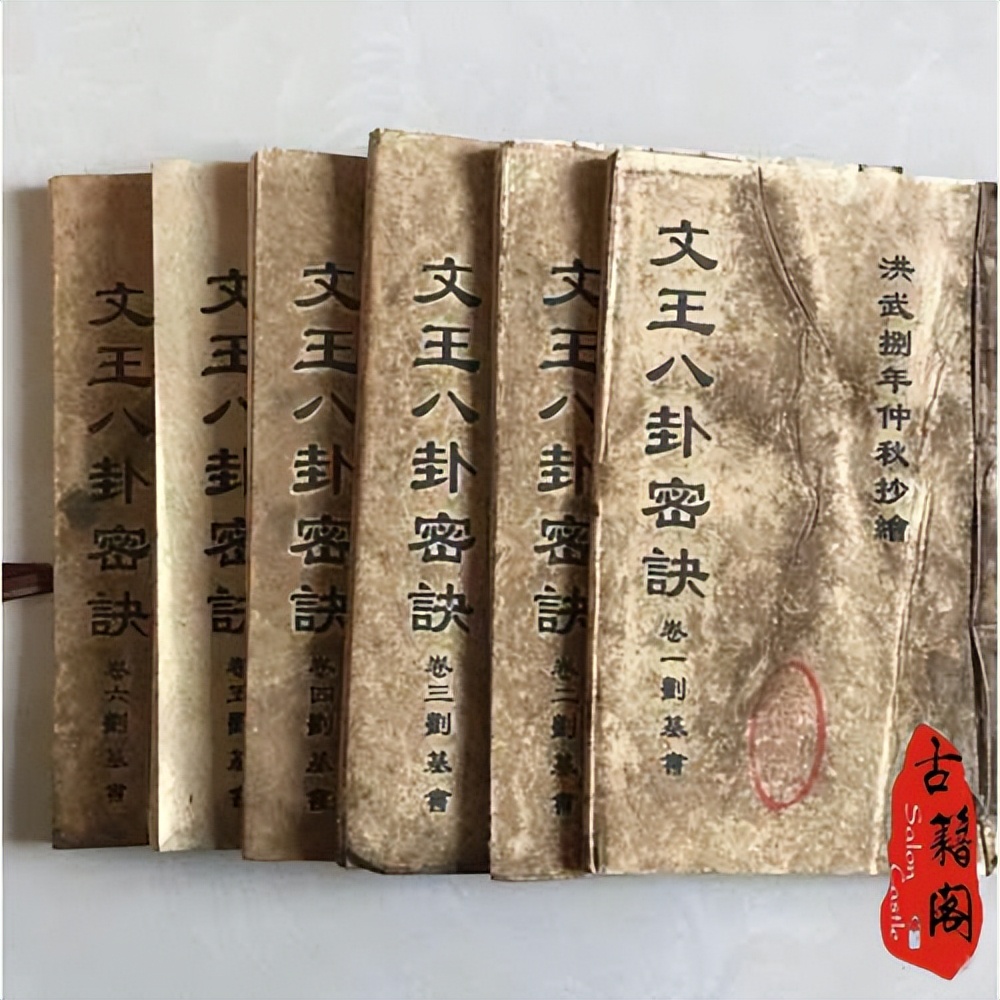 洪武捌年仲秋抄繪
文王八卦密訣 卷一劉基會
文王八卦密訣 卷二劉基會
文王八卦密訣 卷三劉基會
文王八卦密訣 卷四劉基會
文王八卦密訣 卷五劉基會
文王八卦密訣 卷六劉基會
古籍阁
Salon Castle